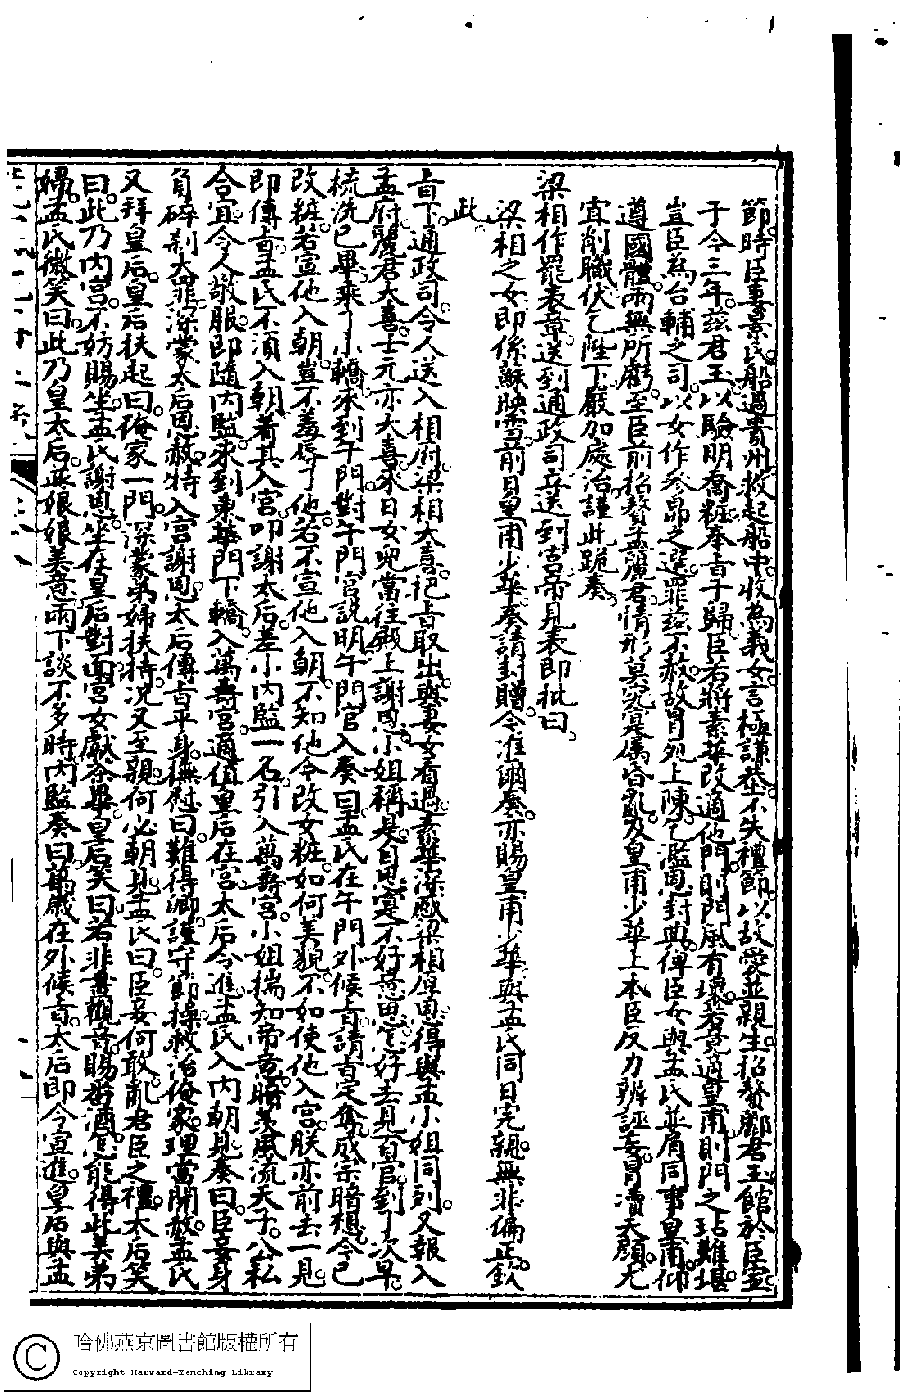 節時臣妻景氏船過貴州救起船中收為義女言極謙恭不失禮節以故愛並親生招贅酈君玉館於臣室
于今三年茲君玉以驗明喬粧奉旨于歸臣若將素華改適他門則門風有壞若竟適皇甫則門之玷難堪
豈臣為台輔之司以女作參昴之選罪茲不赦故冒死上陳乞濫恩封與俾臣女與孟氏並肩同事皇甫仰
遵國體而無所虧至臣前招贅孟麗君情形莫究寔属昏亂及皇甫少華上本臣反力辨誣妄冒瀆天顏尤
宜削職伏乞陛下嚴加處治謹此跪奏
梁相作罷表章送到通政司立送到宮帝見表即批曰
梁相之女即係蘇映雪前日皇甫少華奏請封贈今准爾奏亦賜皇甫少華與孟氏同日完親無非偏正欽
此
旨下通政司令人送入相府梁相大喜把旨取出與妻女看過素華深感梁相原恩得與孟小姐同列又報入
孟府麗君大喜士元亦大喜來日女兒當往殿上謝恩小姐稱是自思寔不好意思怎好去見百官到了次早
梳洗已畢乘了小轎來到午門對午門官說明午門官入奏曰孟氏在午門外候旨請旨定奪成宗暗想今已
改粧若宣他入朝豈不羞辱了他若不宣他入朝不知他今改女粧如何美貌不如使他入宮朕亦前去一見
即傳旨孟氏不須入朝着其入宮叩謝太后差小內監一名引入萬壽宮小姐揣知帝意暗羡風流天子公私
合宜令人敬服即隨內監來到東華門下轎入萬壽宮適值皇后在宮太后令進孟氏入內朝見奏曰臣妾身
負碎剮大罪深蒙太后恩赦特入宮謝恩太后傳旨平身撫慰曰難得卿謹守節操救治俺家理當開赦孟氏
又拜皇后皇后扶起曰俺家一門深蒙弟婦扶持况又至親何必朝見孟氏曰臣妾何敢亂君臣之禮太后笑
曰此乃內宮不妨賜坐孟氏謝恩坐在皇后對面宮女獻茶畢皇后笑曰若非畫觀音賜番酒怎能得此美弟
婦孟氏微笑曰此乃皇太后並娘娘美意而下談不多時內監奏曰萬歲在外候旨太后即令宣進皇后與孟
哈佛燕京圖書館版權所有
Copyright Harvard-Yenching Library